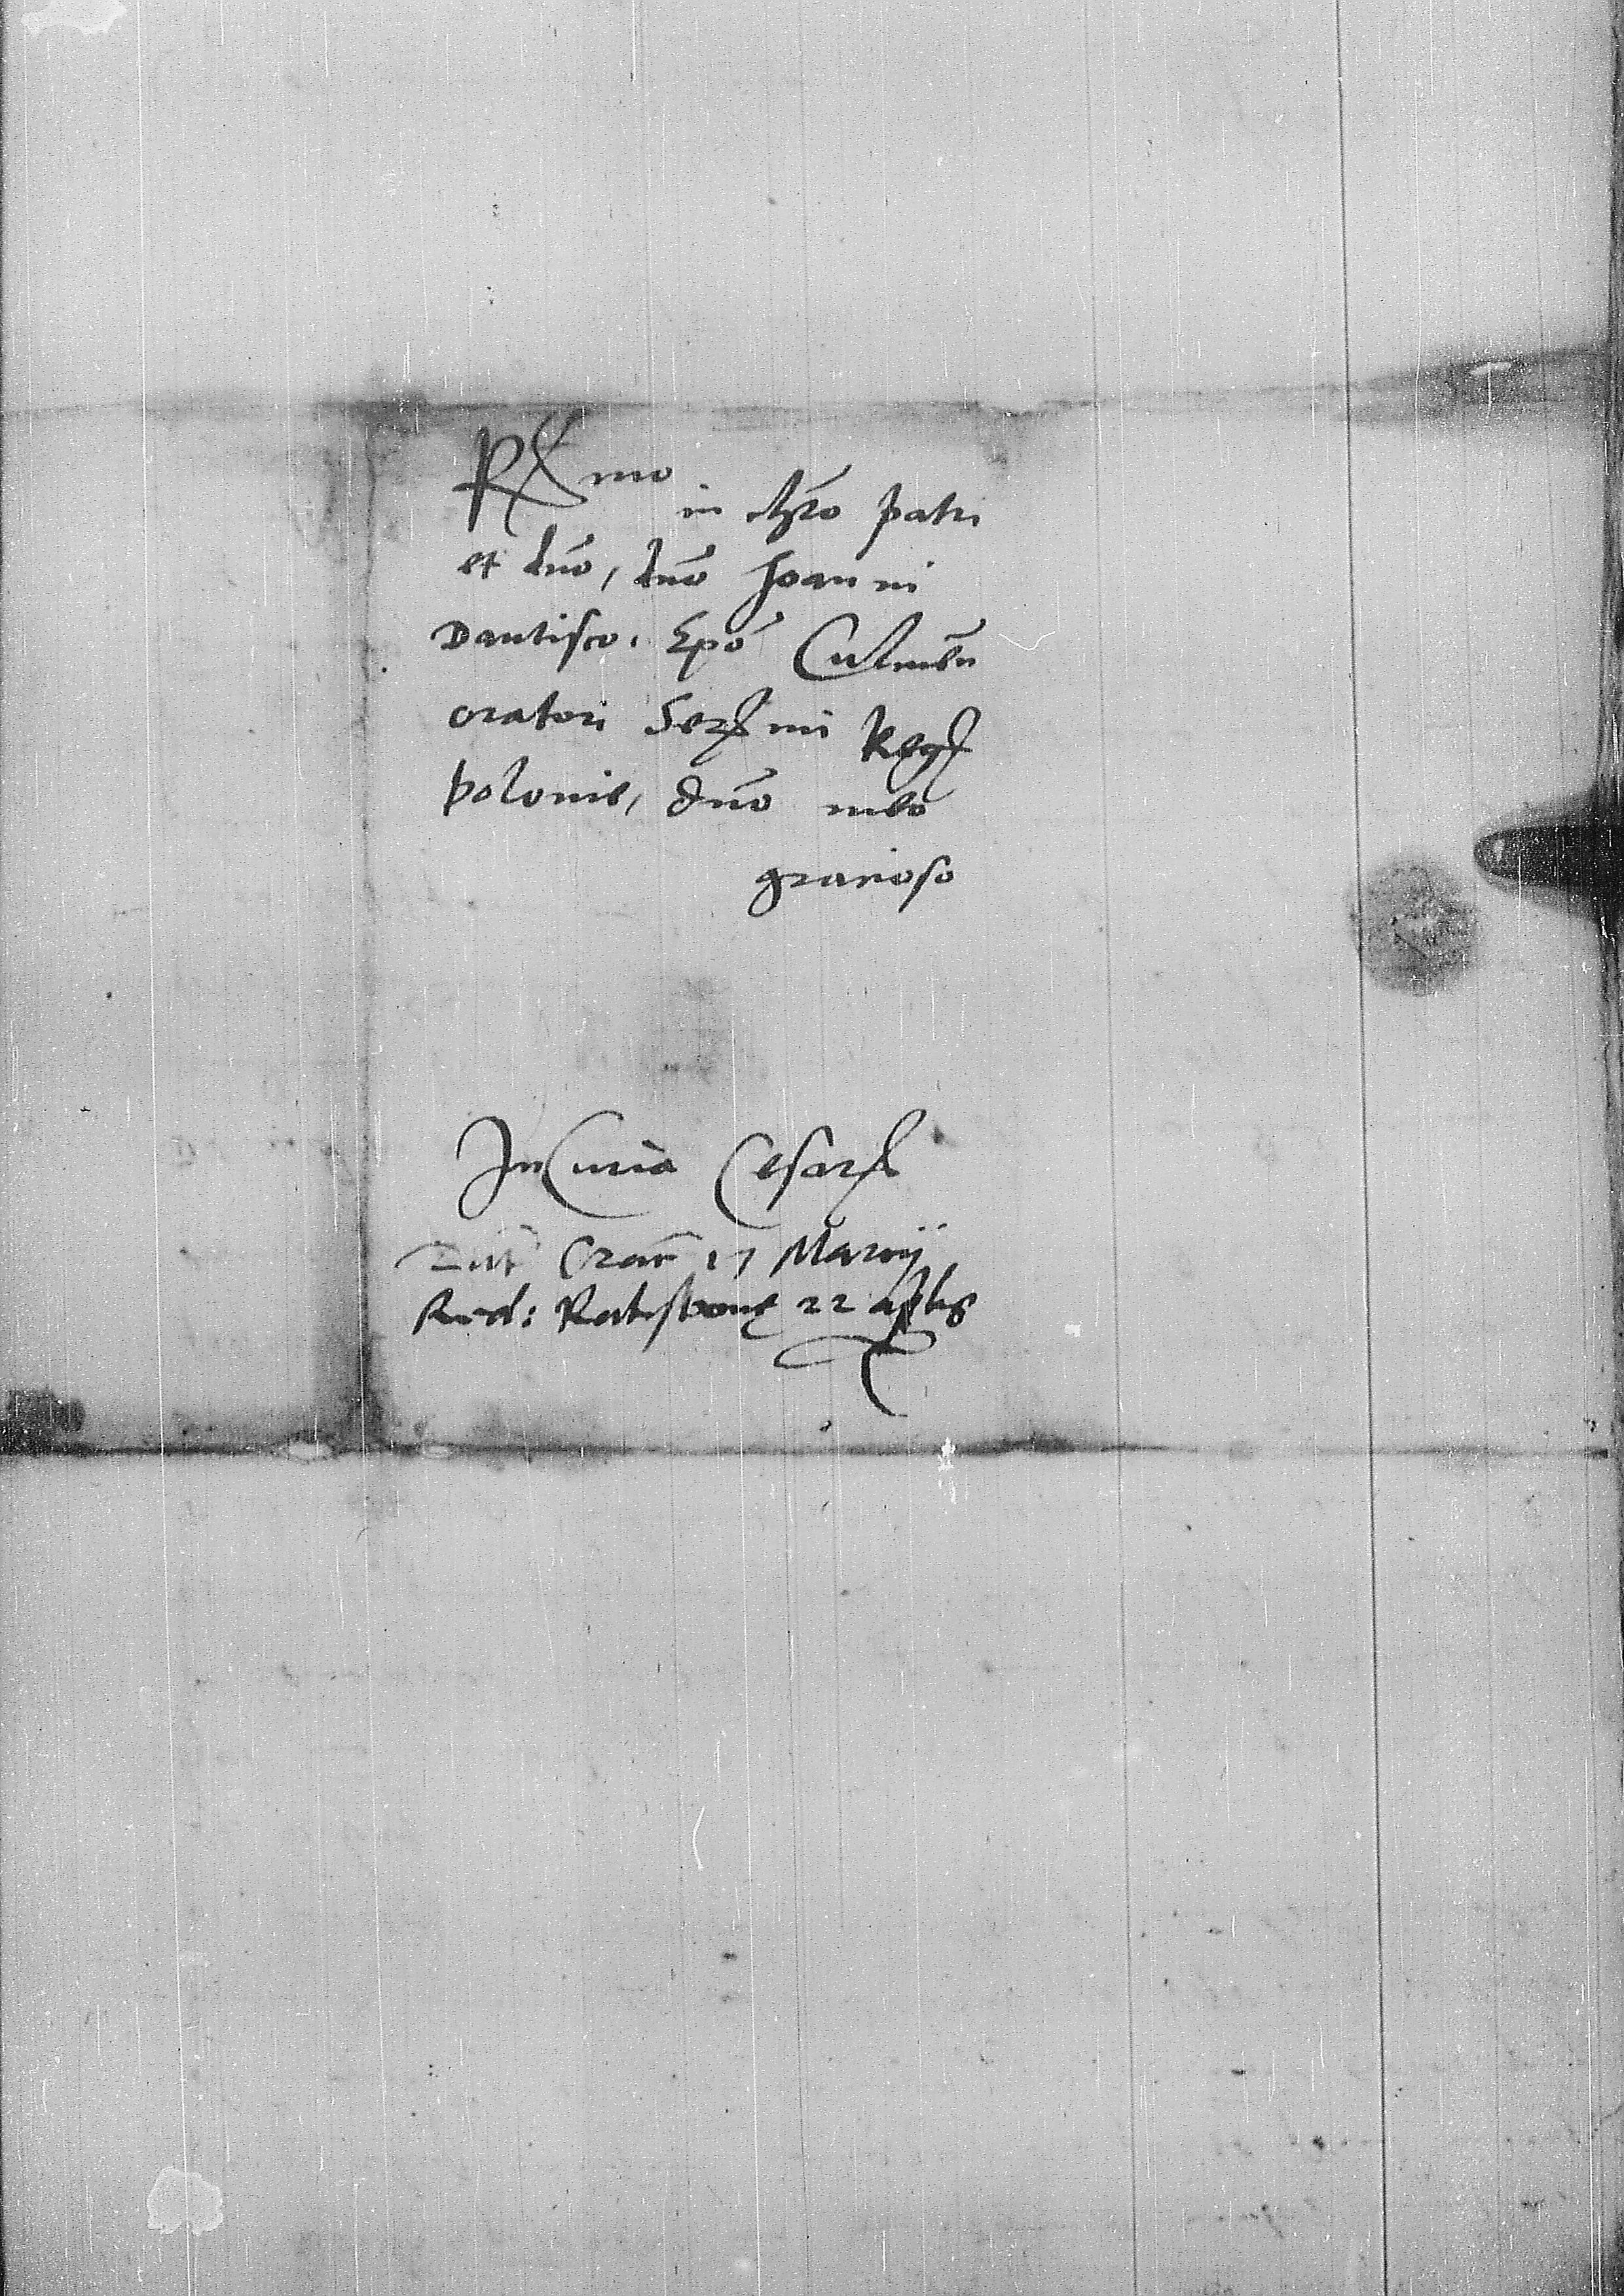 R mo
in chro patri
et dno, dno Joanni
Dantisco. Epo Culmen
oratori Ser mi Reg
polonie, dno meo
gratioso
In Curia Cesar
Crac 17 Marcij
Red: Ratispone 22 aplis